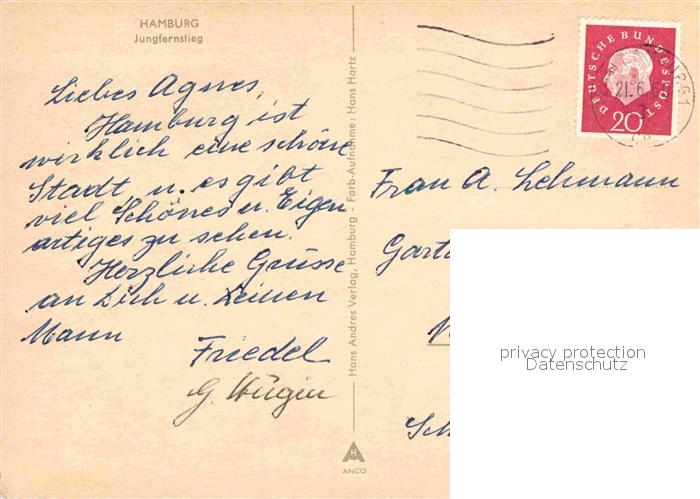 HAMBURG
Jungfernstieg
Liebes Agnes,
Hamburg ist
wirklich eine schöne
Stadt u. es gibt
viel Schönes u. Eigen
artiges zu sehen.
Herzliche Grüsse
an Dich u. Deinen
Mann
Friedel
Hans Andres Verlag, Hamburg - Farb-Aufnahme: Hans Hartz
ANCO
DEUTSCHE BUNDESPOST
20
21.6.
Frau A. Lehmann
privacy protection
Datenschutz